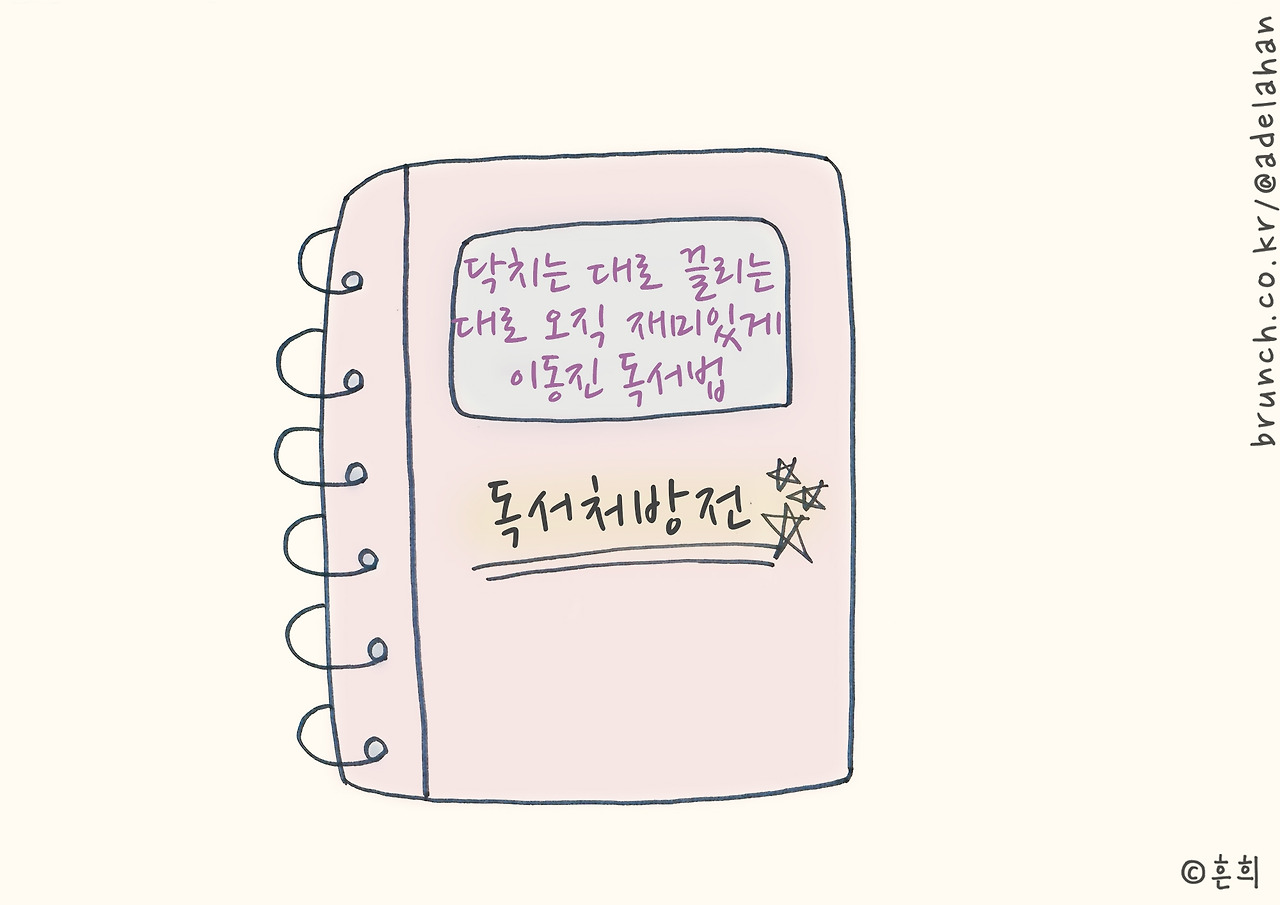 닥치는 대로 끌리는
대로 오직 재미있게
이동진 독서법
독서처방전
brunch.co.kr/@adelahan
©흔희